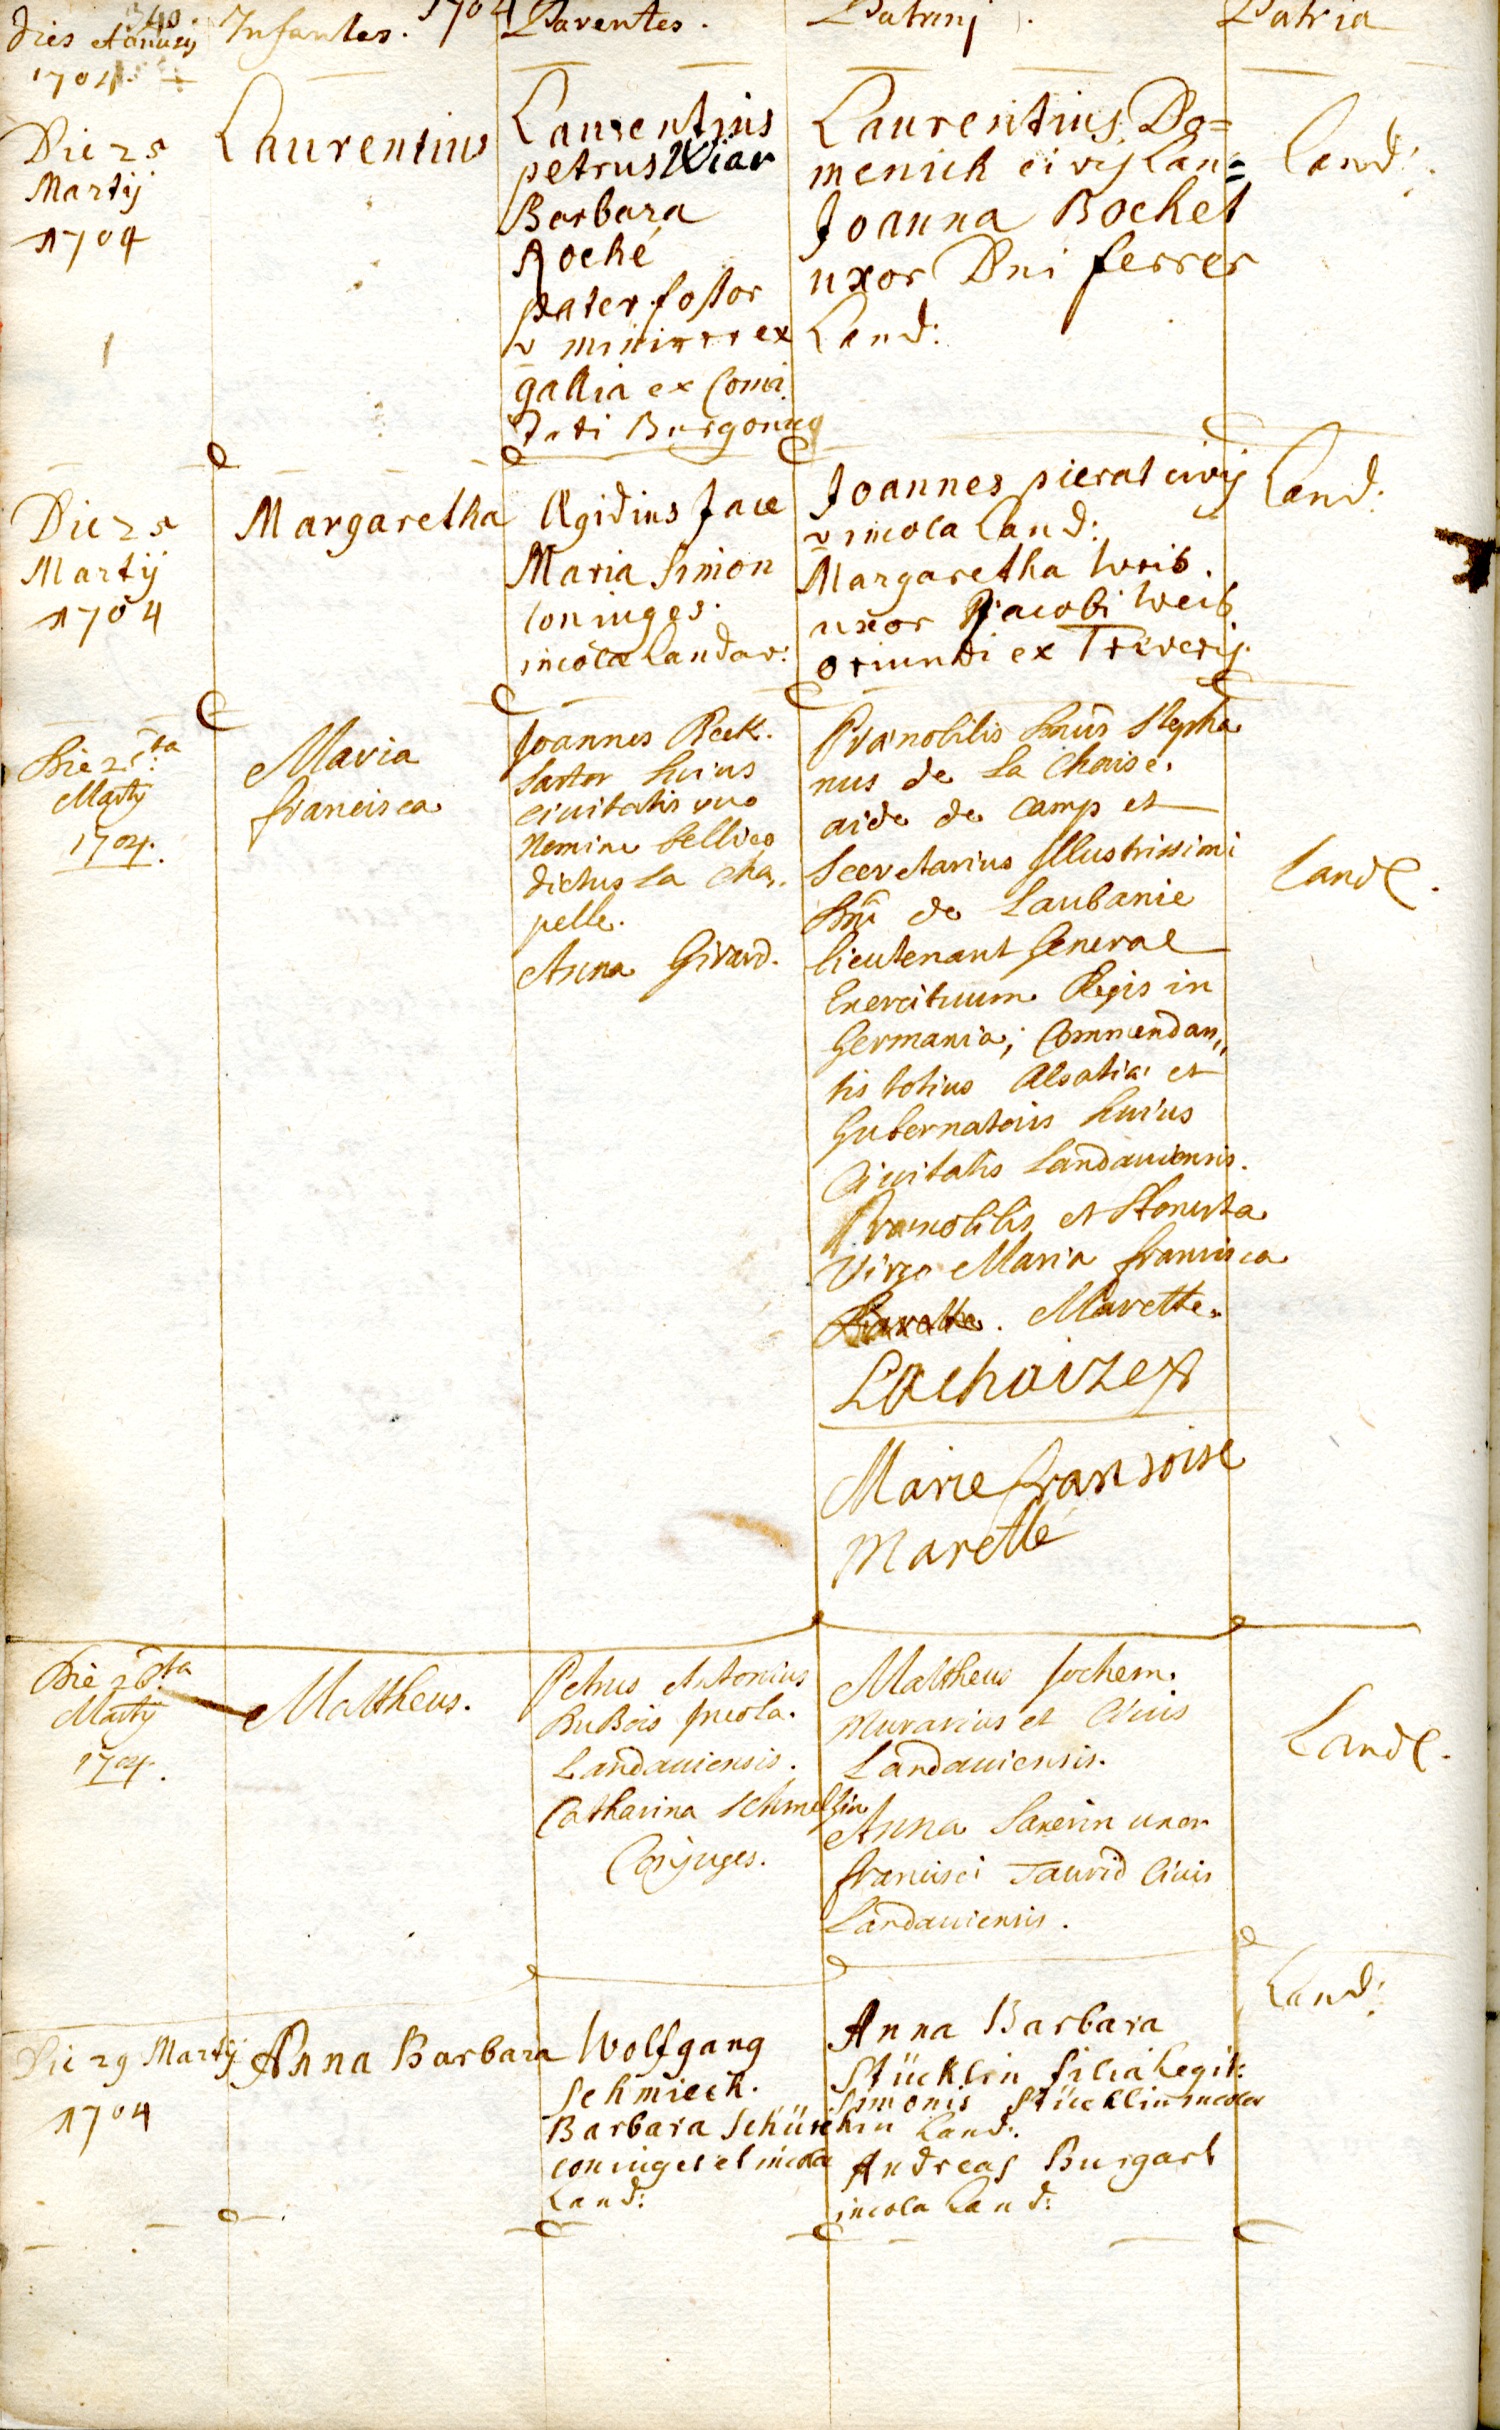 340.
Dies et annus Infantes. 1704 Parentes. Patrinj. Patria
1704
Die 25
Martij
1704
Laurentius
Laurentius
petrus Wiar
Barbara
Roché
pater fossor
v minirer ex
gallia ex Comi
tati Burgonico
Laurentius Do=
menich civis Lan=
Joanna Bochet
uxor Dni ferrer
Land:
Land:
Die 25
Martij
1704
Margaretha
Ægidius Jace
Maria Simon
coniuges.
incolæ Landav:
Joannes pierat civis
v incola Land:
Margaretha Weis.
uxor Jacobi Weis
oriundi ex Treveris.
Land:
Die 25ta
Marty
1704.
Maria
francisca
Joannes Beck.
Sartor huius
civitatis suo
Nomine bellico
dictus La Cha,
pelle.
Anna Girard.
Prænobilis Dnus Stepha
nus de La Chaise.
aide de camp et
Secretarius Illustrissimi
Dni de Laubanie
Lieutenant General
Exercituum Regis in
Germania; Commendan,,
tis totius Alsatiæ et
Gubernatoris huius
Civitatis Landauiensis.
Prænobilis et Honesta
Virgo Maria francisca
Marette.
Lachaize
Marie fransoise
Marette
Land.
Die 26ta
Marty
1704.
Mattheus.
Petrus Antonius
DuBois Incola
Landauiensis.
Catharina Schmeltzin
Conjuges.
Mattheus Jochem.
Murarius et Ciuis
Landauiensis.
Anna Saxerin uxor
francisci Taurid Ciuis
Landauiensis.
Land.
Die 29 Martij
1704
Anna Barbara
Wolfgang
Schmieck.
Barbara Schürckin
coniuges et incolæ
Land:
Anna Barbara
Stücklin filia Legit:
Simonis Stücklin incolæ
Land:
Andreas Burgart
incola Land:
Land: